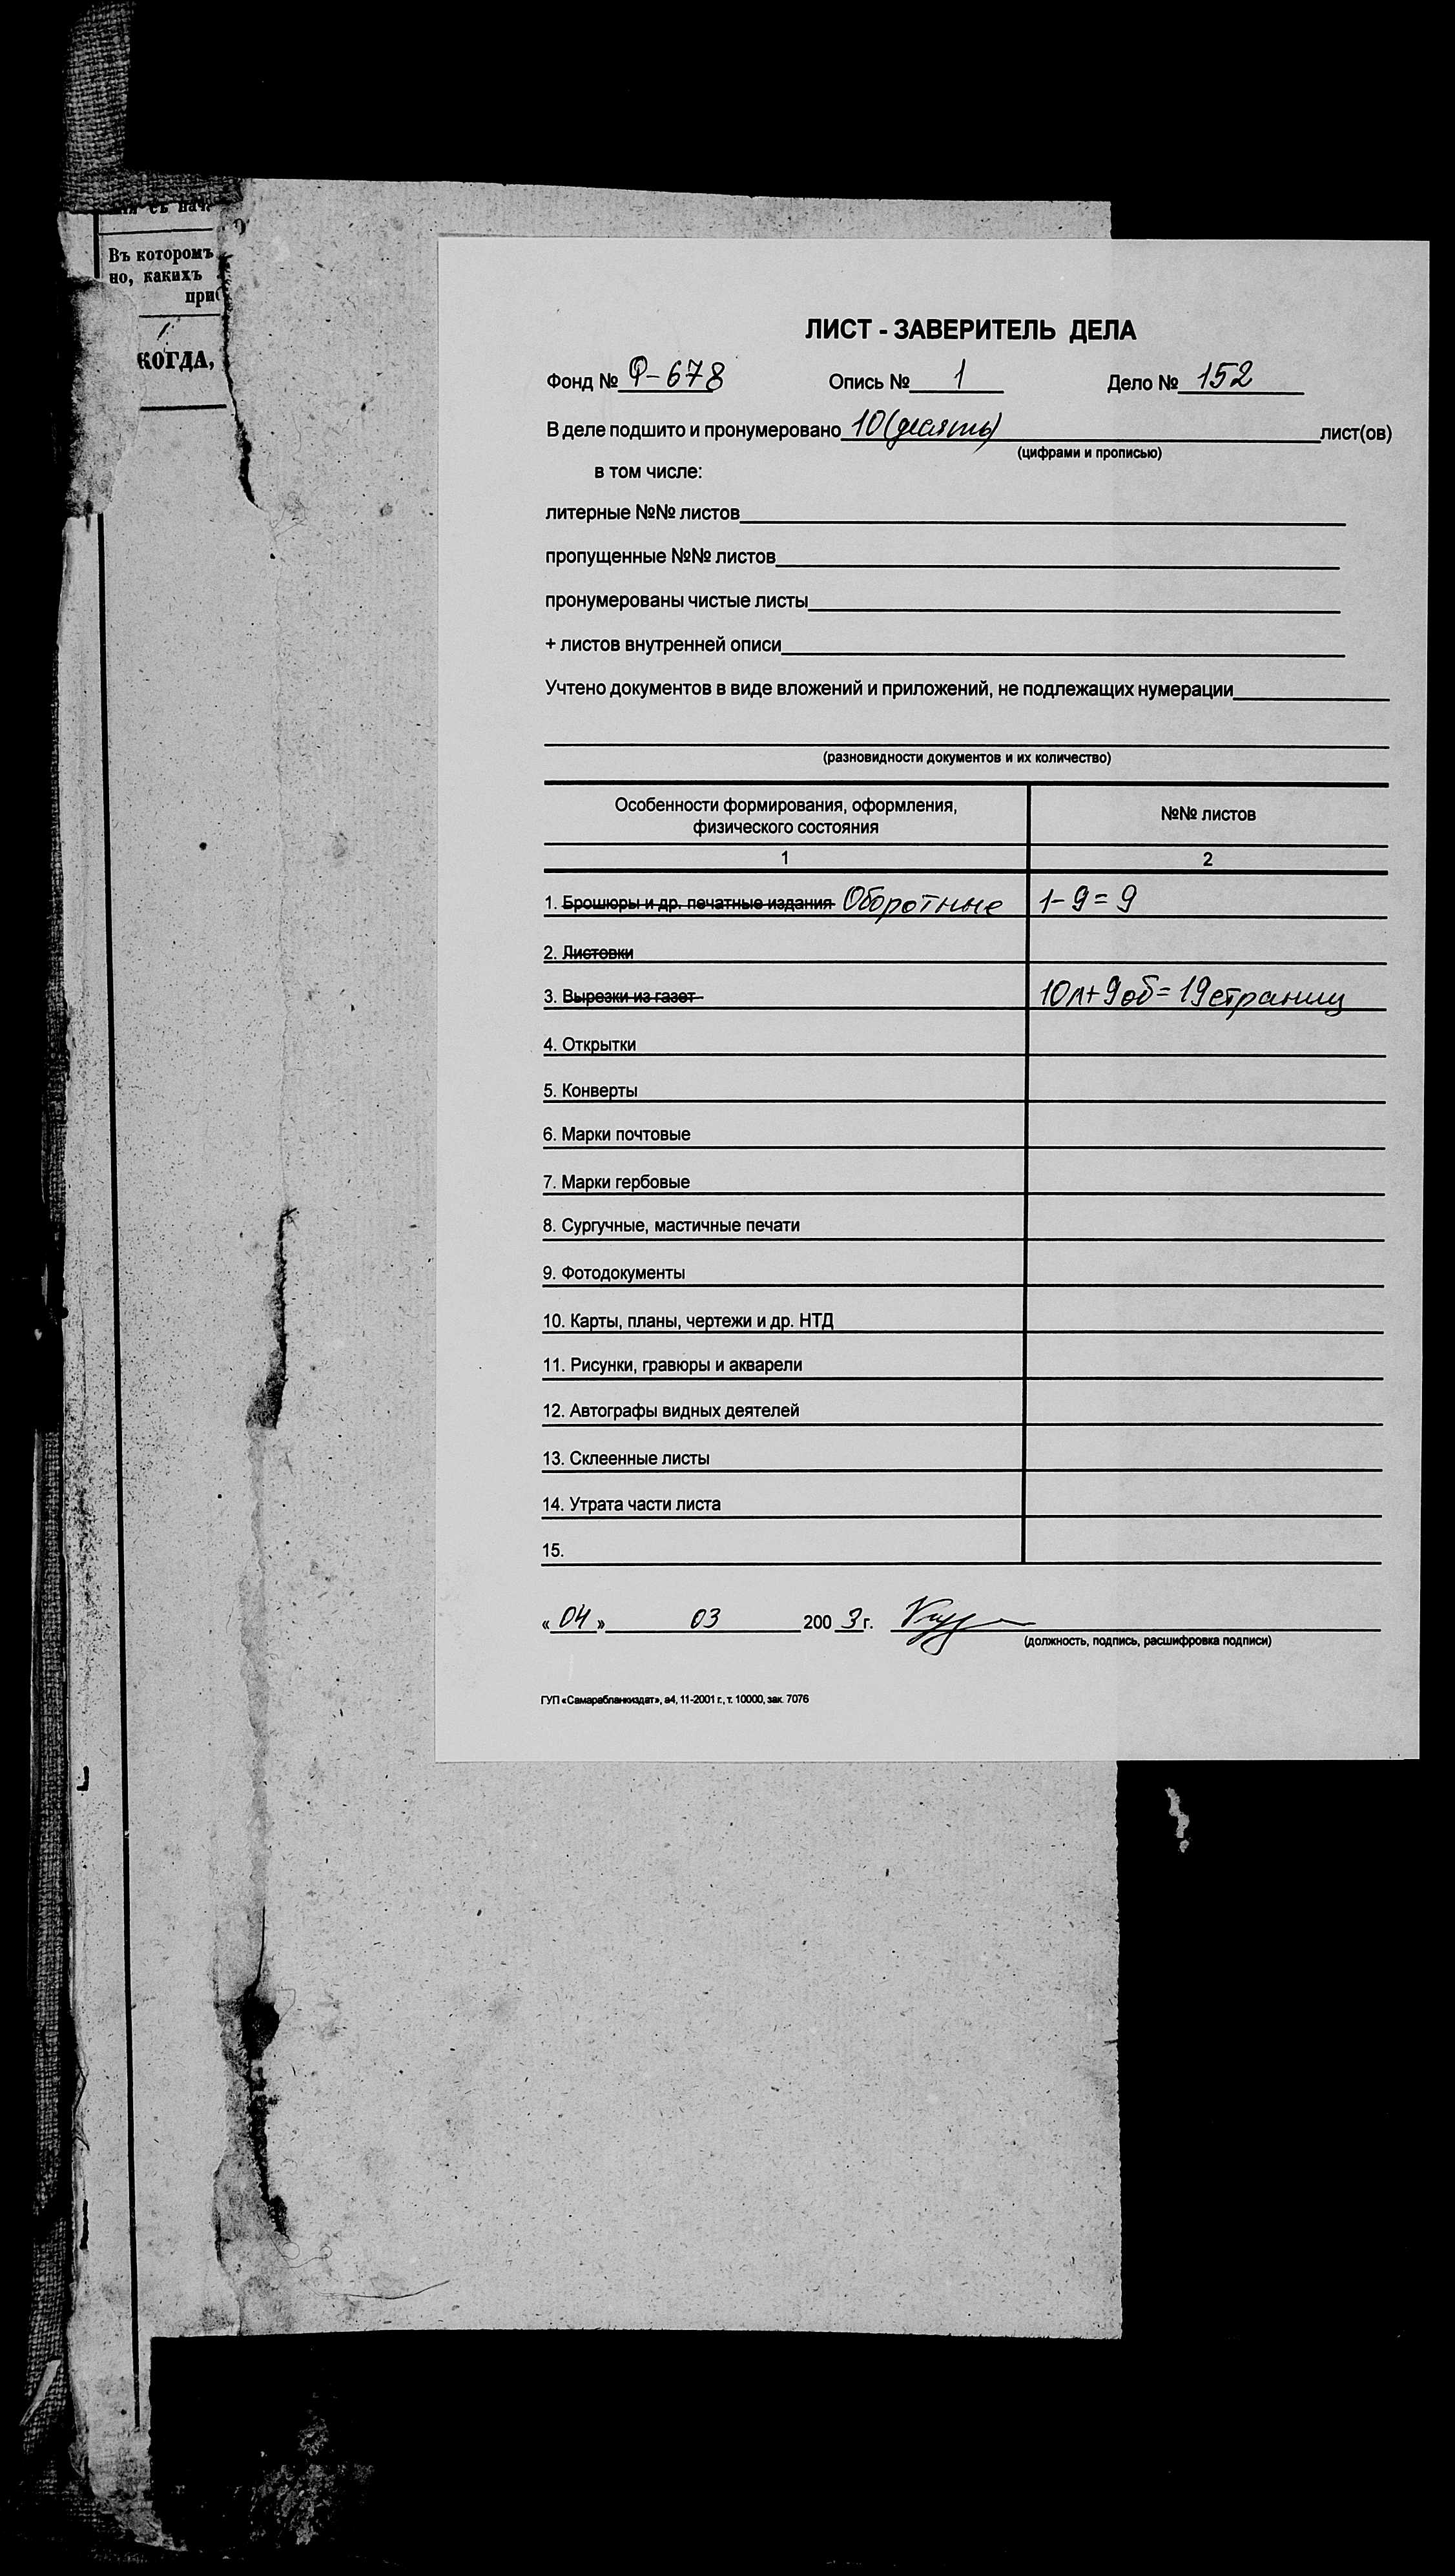 съ нач
Въ которомъ
но, какихъ
при
КОГДА,
ЛИСТ - ЗАВЕРИТЕЛЬ ДЕЛА
Фонд № Ф-678 Опись № 1 Дело № 152
В деле подшито и пронумеровано 10 (десять) лист(ов)
(цифрами и прописью)
в том числе:
литерные №№ листов
пропущенные №№ листов
пронумерованы чистые листы
+ листов внутренней описи
Учтено документов в виде вложений и приложений, не подлежащих нумерации
(разновидности документов и их количество)
Особенности формирования, оформления,
физического состояния
№№ листов
1 2
1. Брошюры и др. печатные издания Оборотные 1-9=9
2. Листовки
3. Вырезки из газет 10л+9об=19страниц
4. Открытки
5. Конверты
6. Марки почтовые
7. Марки гербовые
8. Сургучные, мастичные печати
9. Фотодокументы
10. Карты, планы, чертежи и др. НТД
11. Рисунки, гравюры и акварели
12. Автографы видных деятелей
13. Склеенные листы
14. Утрата части листа
15.
« 04 » 03 200 3 г.
(должность, подпись, расшифровка подписи)
ГУП «Самарабланкиздат», а4, 11-2001 г., т. 10000, зак. 7076